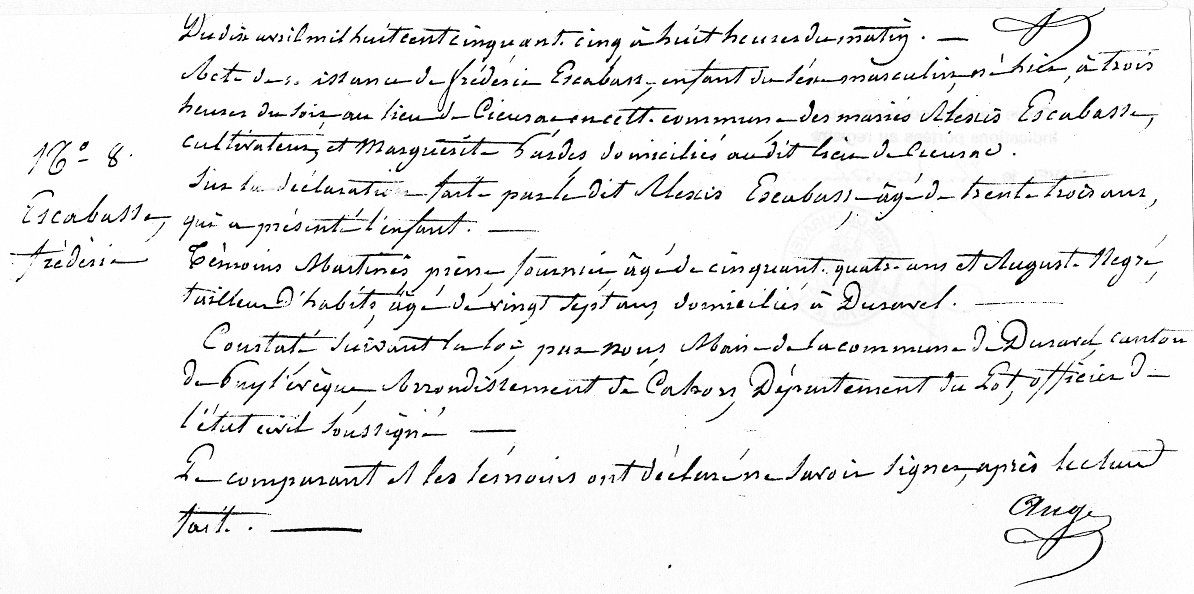 Du dix avril mil huit cent cinquante cinq à huit heures du matin. —
Acte de naissance de frédéric Escabasse, enfant du sèxe masculin, né hier, à trois
heures du soir, au lieu de Cieurac en cette commune des mariés Alexis Escabasse,
N.º 8.
cultivateur, et Marguérite Bardes domiciliés audit lieu de Cieurac.
Sur la déclaration faite par le dit Alexis Escabasse, âgé de trente trois ans,
Escabasse,
qui a présenté l'enfant. —
frédéric
Témoins Martinès pierre fournier, âgé de cinquante quatre ans et Auguste Negré,
tailleur d'habits, âgé de vingt sept ans, domiciliés à Duravel. —
Constaté suivant la loi, par nous Maire de la commune de Duravel, canton
de Puy l'évèque Arrondissement de Cahors, Département du Lot, officier de
l'état civil soussigné —
Le comparant et les témoins ont déclaré ne savoir signer, après lecture
faite. —
Ange